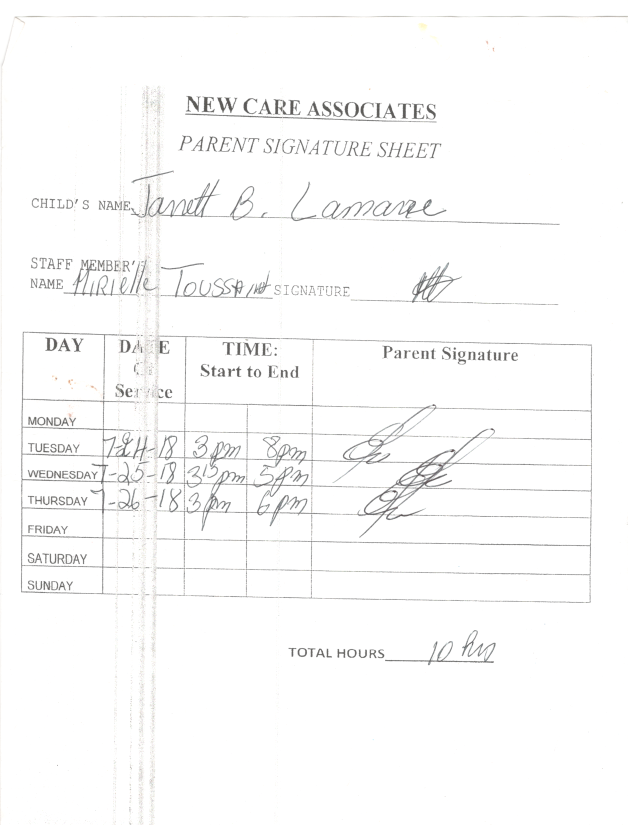 NEW CARE ASSOCIATES
PARENT SIGNATURE SHEET
CHILD'S NAME Jarrett B. Lamarre
STAFF MEMBER'S
NAME Mirielle Toussaint SIGNATURE
DAY DATE Of Service TIME: Start to End Parent Signature
MONDAY
TUESDAY 7-24-18 3pm 8pm
WEDNESDAY 7-25-18 3pm 5pm
THURSDAY 7-26-18 3pm 6pm
FRIDAY
SATURDAY
SUNDAY
TOTAL HOURS 10 hrs